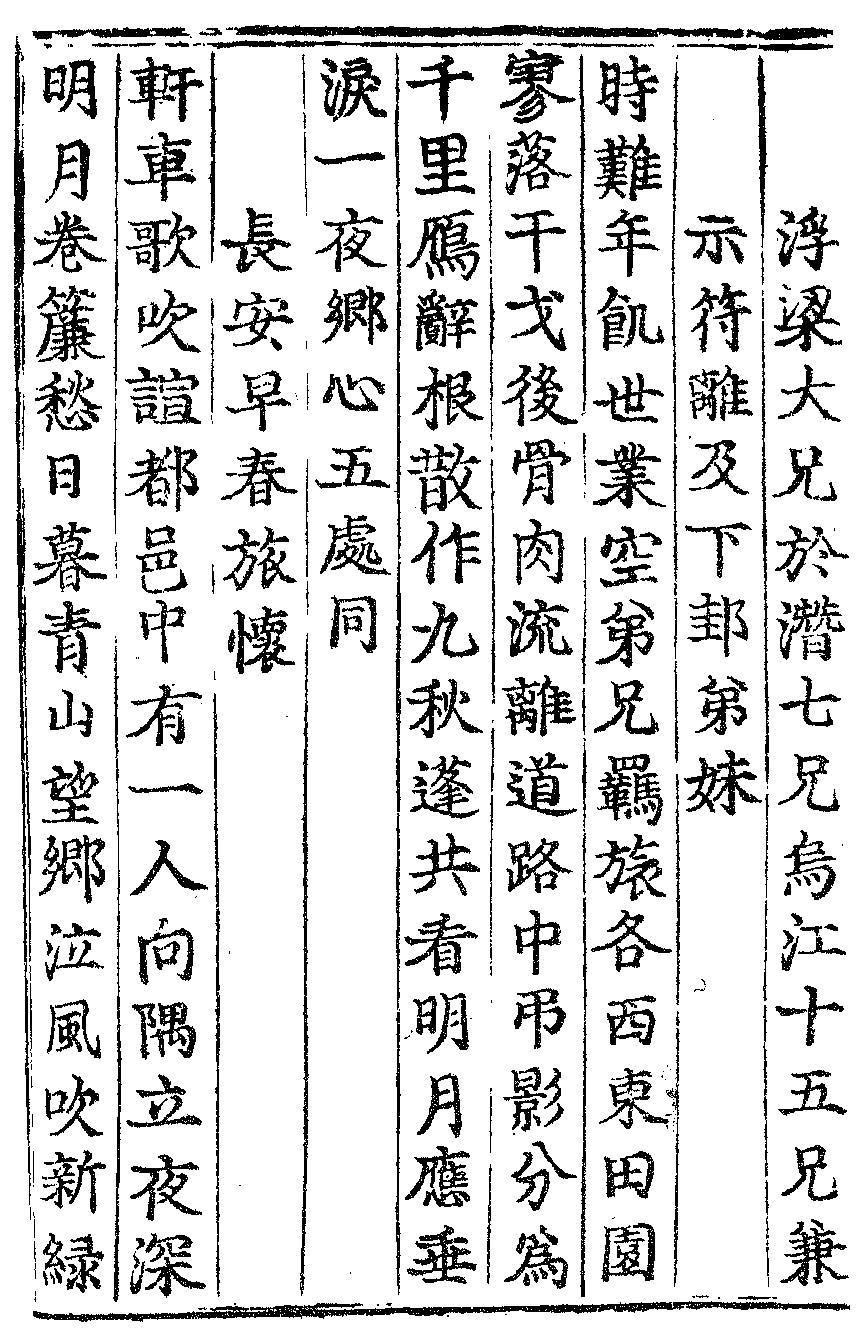 浮梁大兄於潛七兄烏江十五兄兼
示符離及下邽弟妹
時難年飢世業空弟兄羈旅各西東田園
寥落干戈後骨肉流離道路中弔影分爲
千里鴈辭根散作九秋蓬共看明月應垂
淚一夜鄉心五處同
長安早春旅懷
軒車歌吹諠都邑中有一人向隅立夜深
明月卷簾愁日暮青山望鄉泣風吹新緑